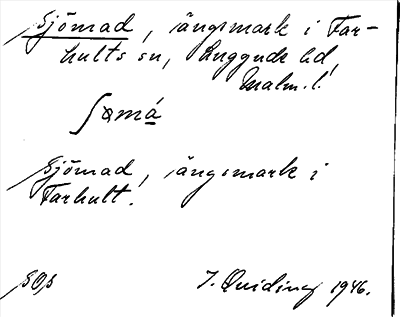 Sjömad, ängsmark i Far-
hults sn, Luggude hd,
Malm. l.
ʃømá
Sjömad, ängsmark i
Farhult.
SOS J. Quiding 1946.